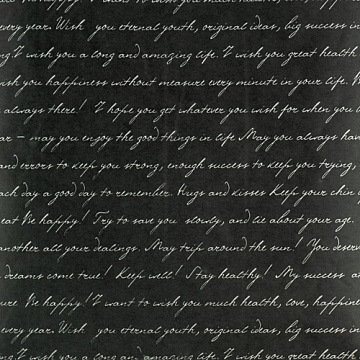 wish you happiness! I want to wish you much health, love, happiness
every year. Wish you eternal youth, original ideas, big success in
ng. I wish you a long and amazing life. I wish you great health
ish you happiness without measure every minute in your life. M
always there! I hope you get whatever you wish for when you b
ar – may you enjoy the good things in life May you always hav
and errors to keep you strong, enough success to keep you trying,
ach day a good day to remember. Hugs and kisses Keep your chin u
eat Be happy! Try to save you slowly, and lie about your age.
another all your dealings. May trip around the sun! You deserv
dreams come true! Keep well! Stay healthy! My success a
ure. Be happy! I want to wish you much health, love, happine
every year. Wish you eternal youth, original ideas, big success in
ng. I wish you a long and amazing life. I wish you great health